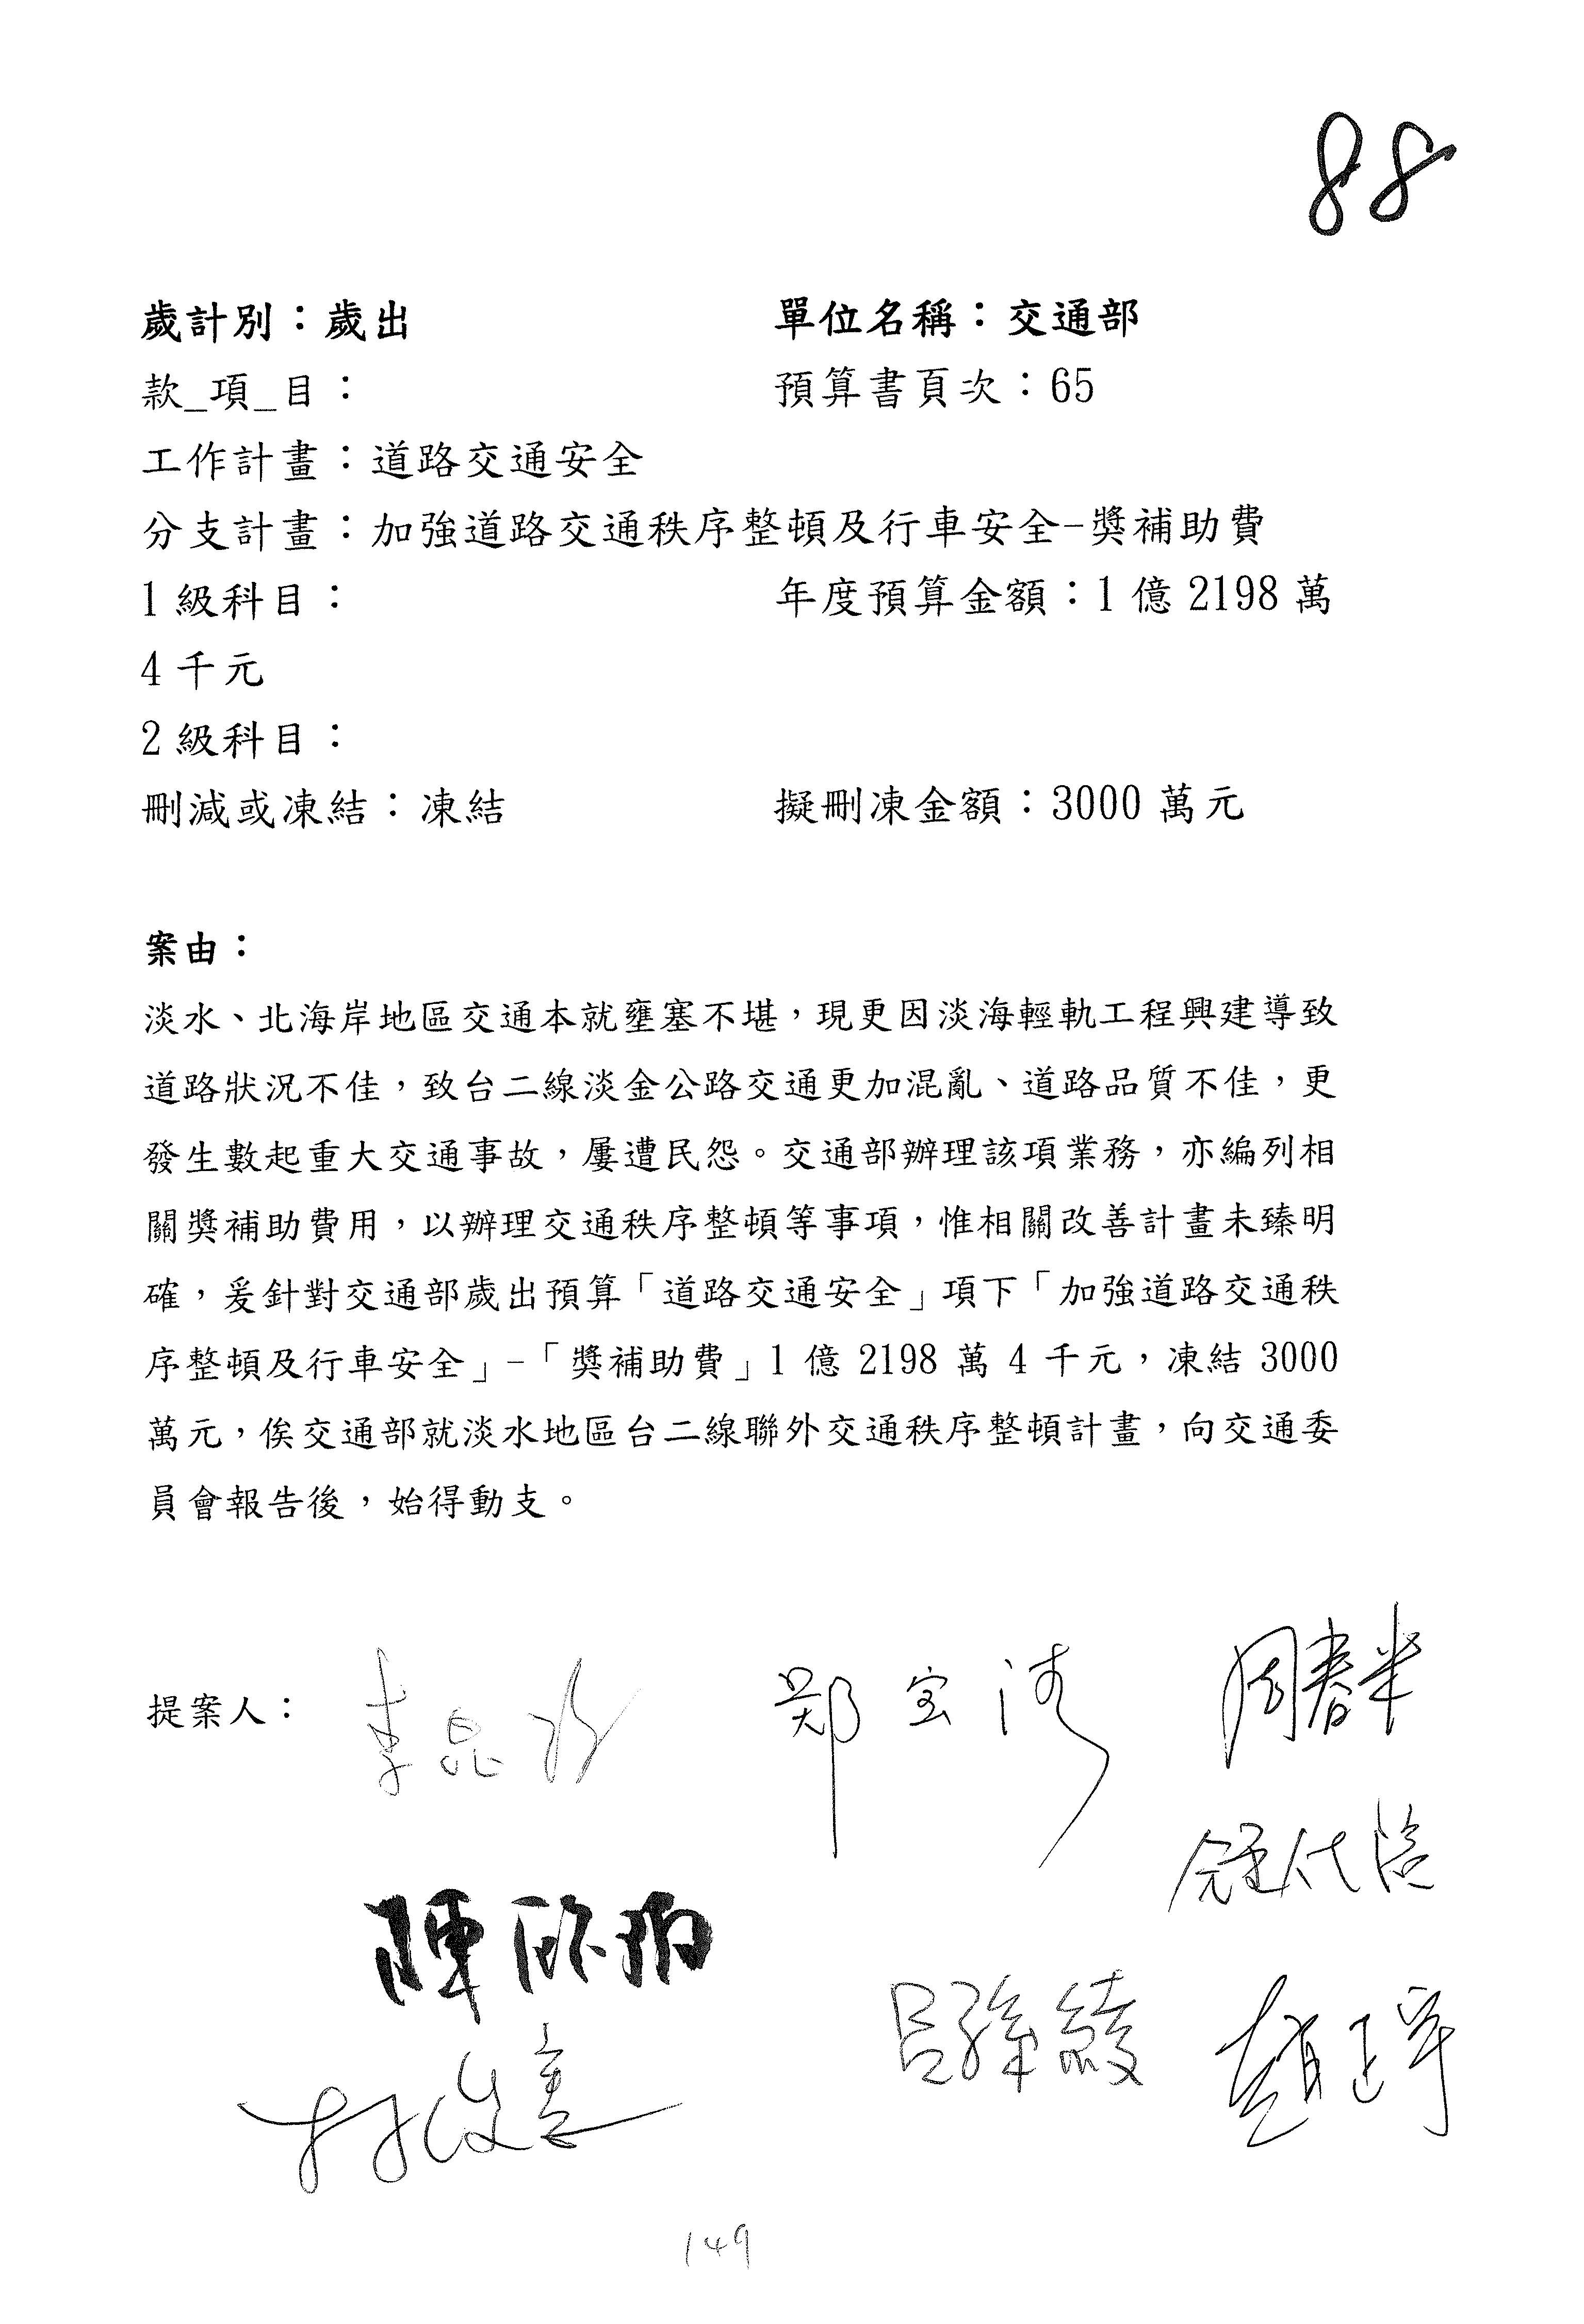 88
歲計別：歲出 單位名稱：交通部
款_項_目： 預算書頁次：65
工作計畫：道路交通安全
分支計畫：加強道路交通秩序整頓及行車安全-獎補助費
1 級科目： 年度預算金額：1 億 2198 萬
4 千元
2 級科目：
刪減或凍結：凍結 擬刪凍金額：3000 萬元
案由：
淡水、北海岸地區交通本就壅塞不堪，現更因淡海輕軌工程興建導致
道路狀況不佳，致台二線淡金公路交通更加混亂、道路品質不佳，更
發生數起重大交通事故，屢遭民怨。交通部辦理該項業務，亦編列相
關獎補助費用，以辦理交通秩序整頓等事項，惟相關改善計畫未臻明
確，爰針對交通部歲出預算「道路交通安全」項下「加強道路交通秩
序整頓及行車安全」-「獎補助費」1 億 2198 萬 4 千元，凍結 3000
萬元，俟交通部就淡水地區台二線聯外交通秩序整頓計畫，向交通委
員會報告後，始得動支。
提案人： 李昆澤 鄭宝清 周春米
鍾佳濱
陳欧珀
呂孫綾 趙正宇
林俊憲
149